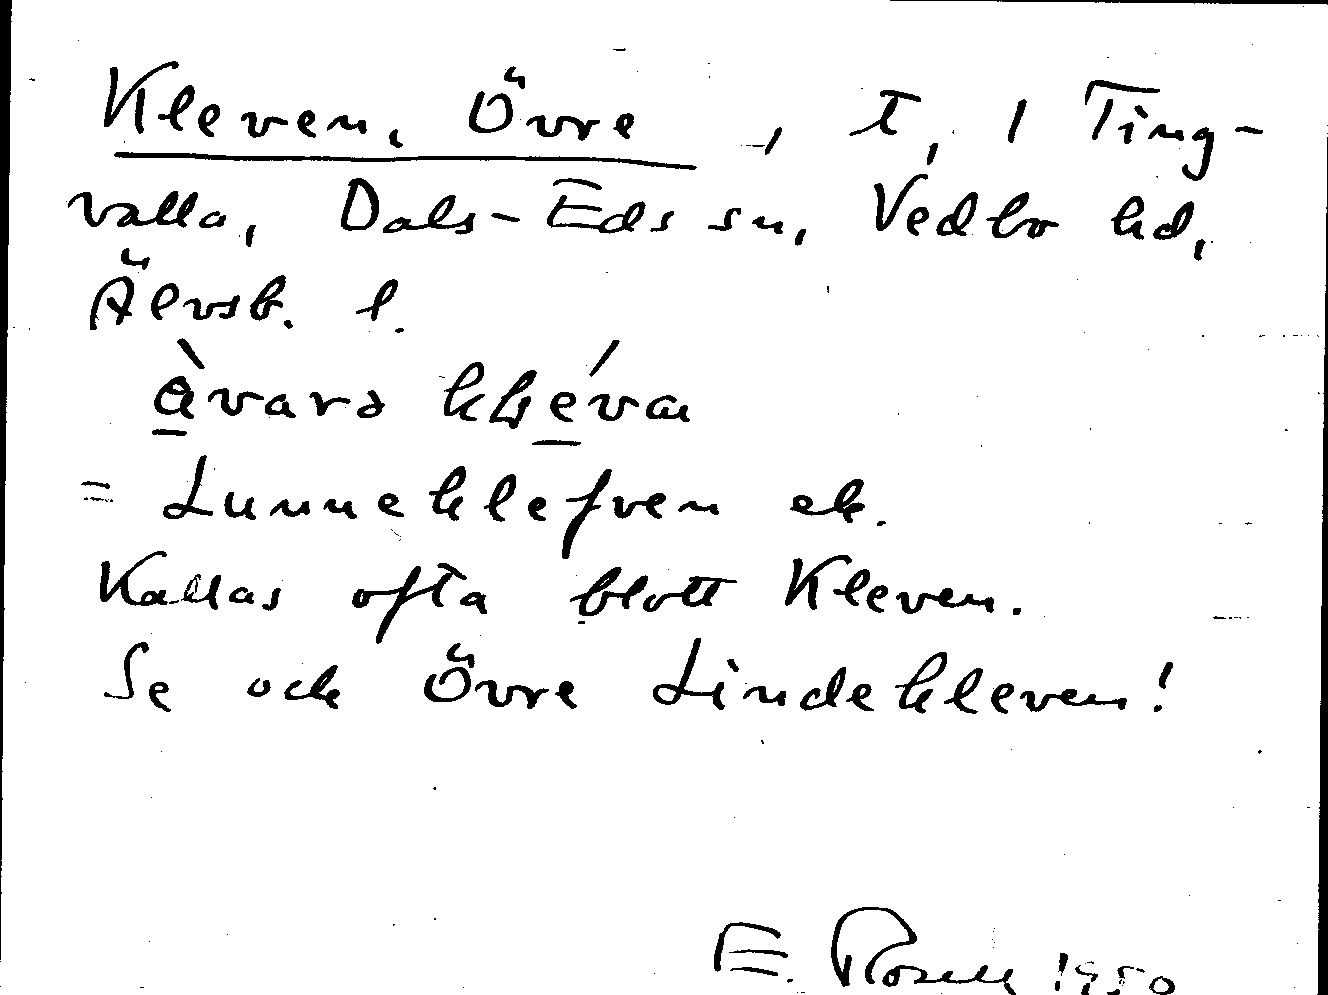 Kleven, Övre, t, 1 Ting-
valla, Dals-Eds sn, Vedbo hd,
Älvsb. l.
àvarə kḷévan
= Lunneklefven ek.
Kallas ofta blott Kleven.
Se och Övre Lindekleven!
E. Rosell 1950